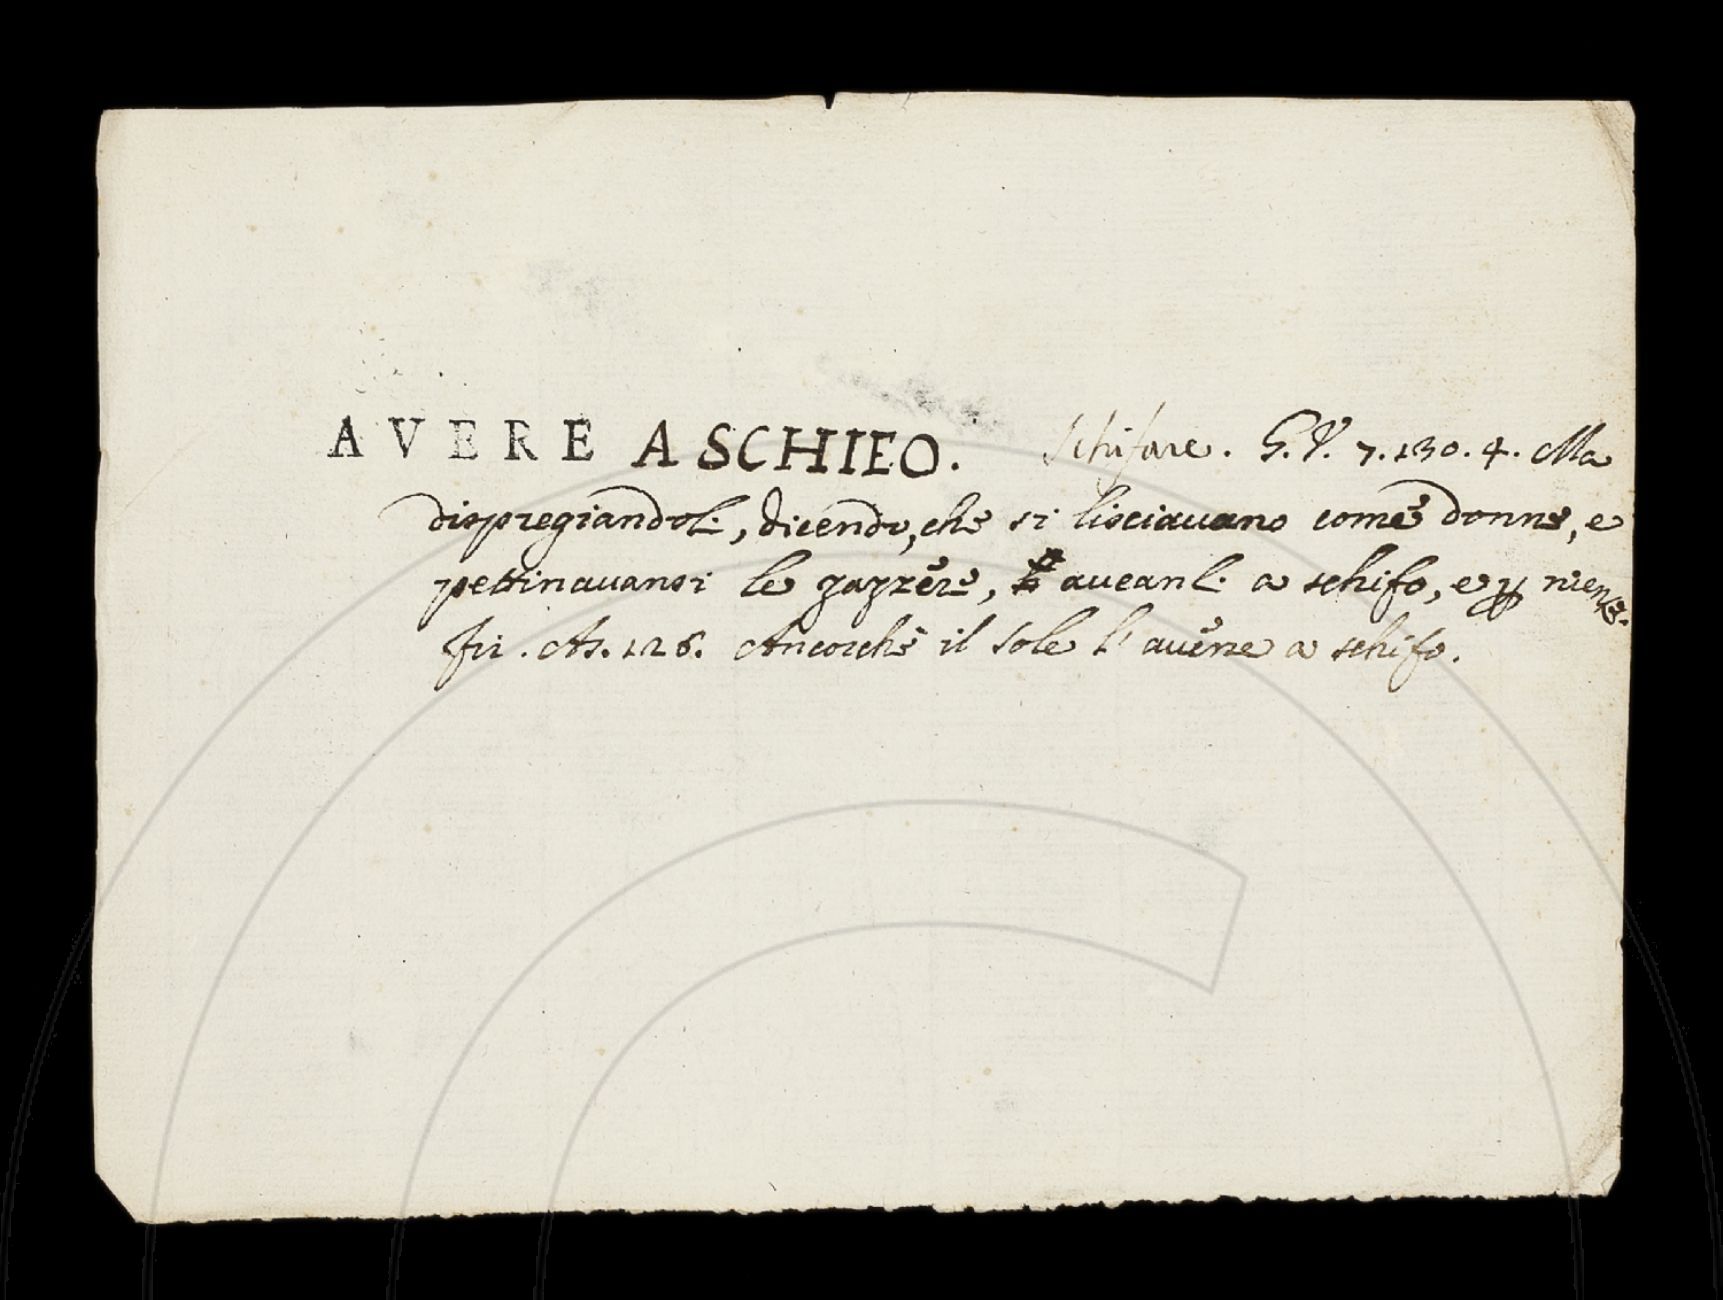 AVERE A SCHIFO. Schifare. G. V. 7. 130. 4. Ma
dispregiandoli, dicendo, che si lisciavano come donne, e
pettinavansi le zazzere, aveanli a schifo, e ꝑ niente.
Fir. As. 126. Ancorchè il Sole l'avesse a schifo.